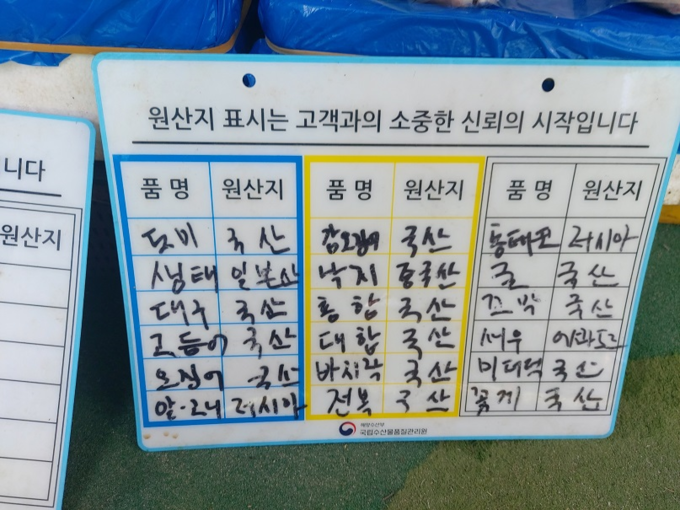 니다
원산지
원산지 표시는 고객과의 소중한 신뢰의 시작입니다
품 명 원산지 품 명 원산지 품 명 원산지
국산 갑오징어 국산 동태포 러시아
생태 일본산 낙지 중국산 굴 국산
대구 국산 홍합 국산 꼬막 국산
고등어 국산 대합 국산 새우
오징어 국산 바지락 국산 미더덕 국산
러시아 전복 국산 꽃게 국산
해양수산부
국립수산물품질관리원